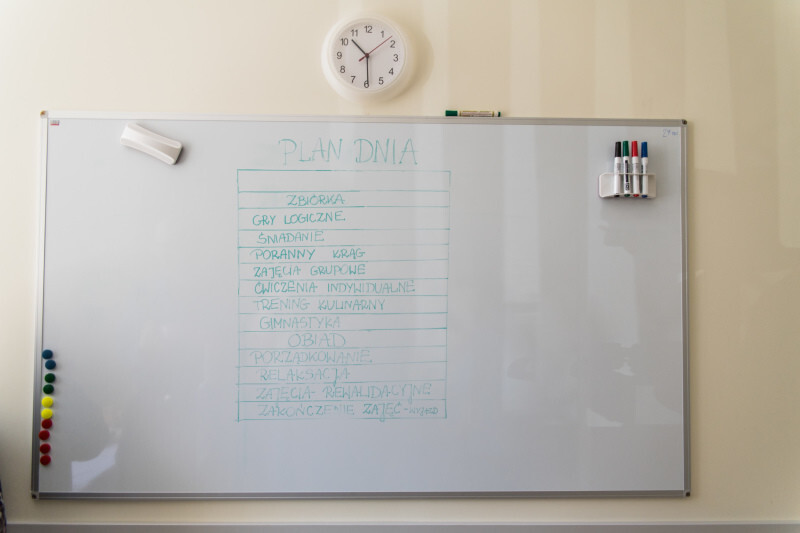 12
1
2
3
4
5
6
7
8
9
10
11
PLAN DNIA
ZBIÓRKA
GRY LOGICZNE
ŚNIADANIE
PORANNY KRĄG
ZAJĘCIA GRUPOWE
ĆWICZENIA INDYWIDUALNE
TRENING KULINARNY
GIMNASTYKA
OBIAD
PORZĄDKOWANIE
RELAKSACJA
ZAJĘCIA REWALIDACYJNE
ZAKOŃCZENIE ZAJĘĆ -